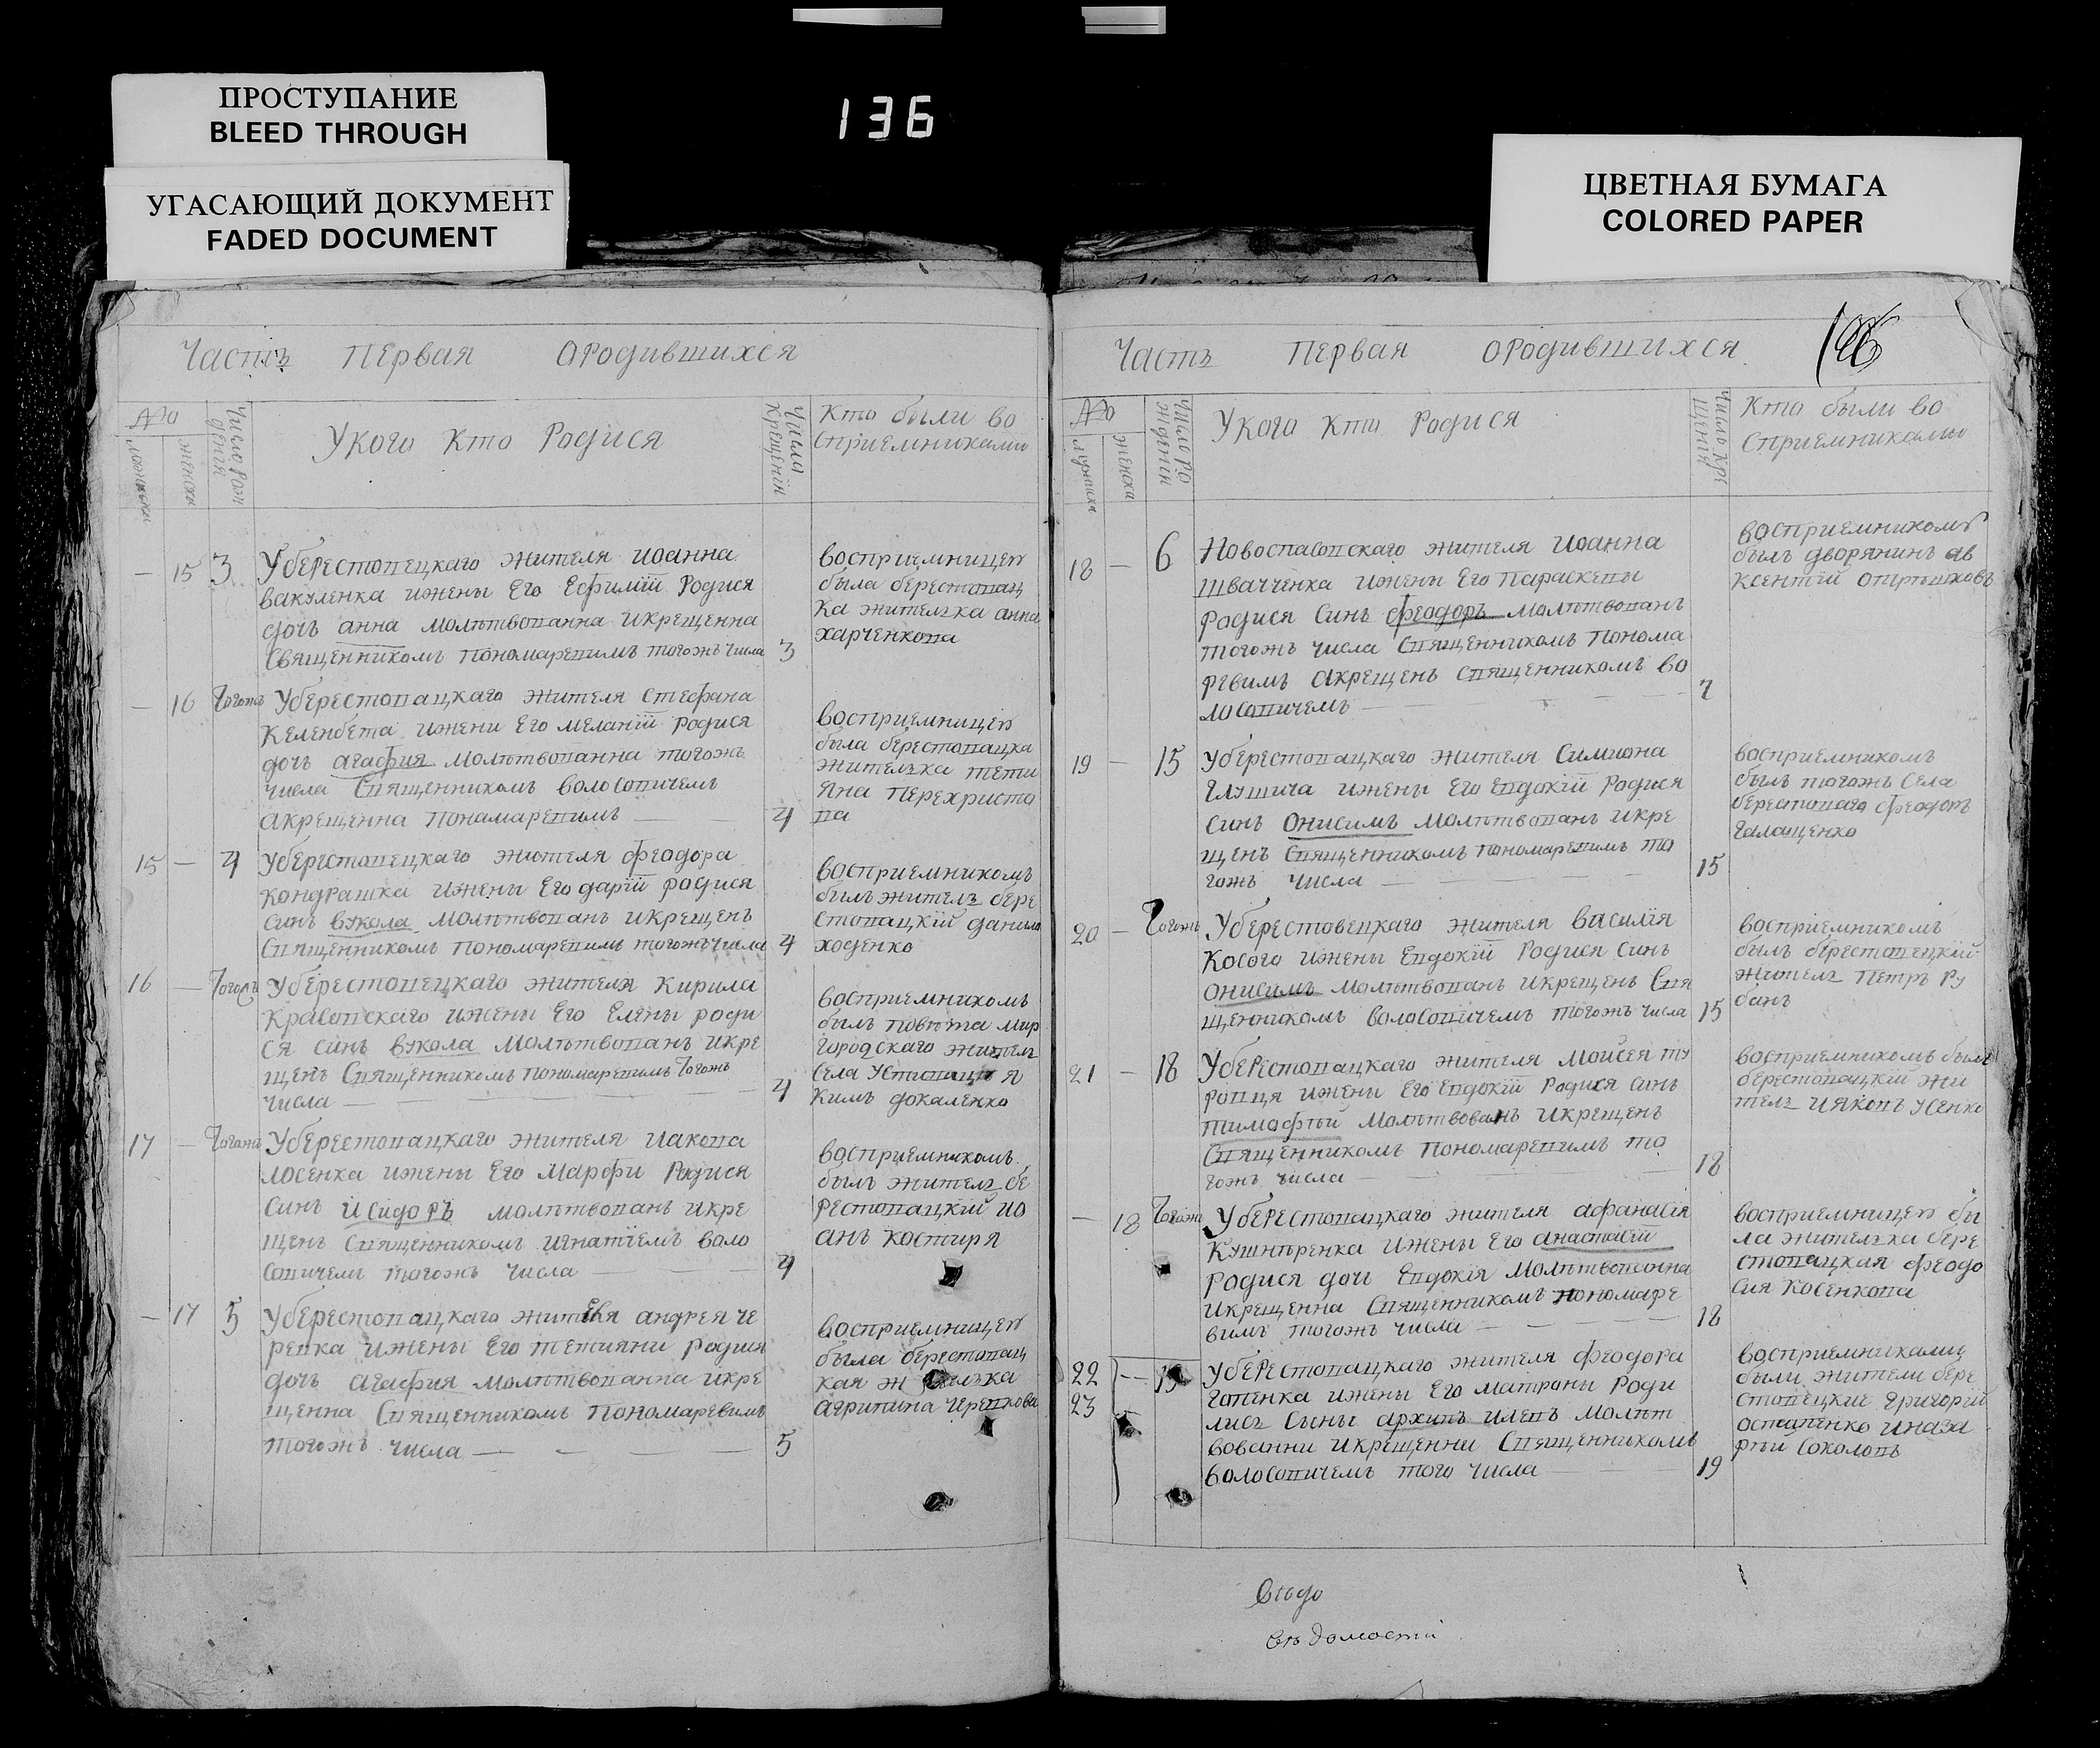 ПРОСТУПАНИЕ
BLEED THROUGH
УГАСАЮЩИЙ ДОКУМЕНТ
FADED DOCUMENT
136
ЦВЕТНАЯ БУМАГА
COLORED PAPER
Часть Первая ородившихся
№
мужеска
женска
Число Рож
дения
У кого Кто Родися
Числа
Крещенія
Кто были во
сприемниками
15 3 У берестовецкаго жителя иоанна
вакуленка ижены Его Еєфимїй Родися
дочь анна молитвованна икрещенна
Священникомъ пономаревимъ тогожъ числа 3
восприемницею
была берестовац
ка жителька анна
харченкова
16 Тогожъ У берестовацкаго жителя стефана
Келембета ижени Его меланїй родися
дочь агафия молитвованна тогожъ
числа Священникомъ волосовичемъ
акрещенна пономаревимъ 4
восприемницею
была берестовацка
жителька тети
яна перехристо
ва
15 4 У берестовецкаго жителя феодора
кондрашка ижены Его дарїй родися
синъ вукола молитвованъ икрещенъ
Священникомъ пономаревимъ тогожъ числа 4
восприемникомъ
былъ жителъ бере
стовацкїй данило
ходенко
16 Тогожъ У берестовецкаго жителя Кирила
Красовскаго ижены Его Елены роди
ся синъ вукола молитвованъ икре
щенъ Священникомъ пономаревимъ тогожъ
числа 4
восприемникомъ
былъ повѣта мир
городскаго жителъ
села Устивици я
кимъ докаленко
17 Тогожъ У берестовацкаго жителя иакова
лосенка ижены Его Марфи Родися
синъ исидоръ молитвованъ икре
щенъ Священникомъ игнатїемъ воло
совичемъ тогожъ числа 4
восприемникомъ
былъ жителъ бе
рестовацкїй ио
анъ костиря
17 5 У берестовацкаго жителя андрея че
репка ижены Его тетияни родися
дочь агафия молитвованна икре
щенна Священникомъ пономаревимъ
тогожъ числа 5
восприемницею
была берестовац
кая жителька
агрипина черепкова
Часть Первая ородившихся
№
мужеска
женска
Число Ро
жденїя
У кого Кто Родися
Число Кре
щения
Кто были во
сприемниками
18 6 Новоспасовскаго жителя иоанна
швачченка ижены Его параскевы
родися синъ феодоръ молитвованъ
тогожъ числа Священникомъ понома
ревимъ акрещенъ священникомъ во
лосовичемъ 7
восприемникомъ
былъ дворянинъ ав
ксентїй
19 15 У берестовацкаго жителя Симиона
глушича ижены Его Евдокїй родися
синъ Онисимъ молитвованъ икре
щенъ Священникомъ пономаревимъ то
гожъ числа 15
восприемникомъ
былъ тогожъ села
берестоваго феодоръ
галащенко
20 Тогожъ У берестовецкаго жителя василїя
косого ижены Евдокїй Родися синъ
Онисимъ молитвованъ икрещенъ Свя
щенникомъ волосовичемъ тогожъ числа 15
восприемникомъ
былъ берестовецкїй
жителъ петръ ру
банъ
21 18 У берестовацкаго жителя моисея ту
ровця ижены Его Евдокїй родися синъ
тимофтѣй молитвованъ икрещенъ
Священникомъ пономаревимъ то
гожъ числа 18
восприемникомъ былъ
берестовацкїй жи
телъ иЯковъ усенко
18 Тогожъ У берестовацкаго жителя афанасїя
кушнѣренка ижены Его анастасїй
родися дочь Евдокїя молитвованна
икрещенна Священникомъ пономаре
вимъ тогожъ числа 18
восприемницею бы
ла жителька бере
стовацкая феодо
сия косенкова
22 19 У берестовацкаго жителя феодора
23 готенка ижены Его матроны роди
лись сыны архипъ илевъ молит
вованни икрещенни Священникомъ
волосовичемъ того числа 19
восприемниками
были жители бере
стовецкие григорїй
остапенко иназа
рѣй соколовъ